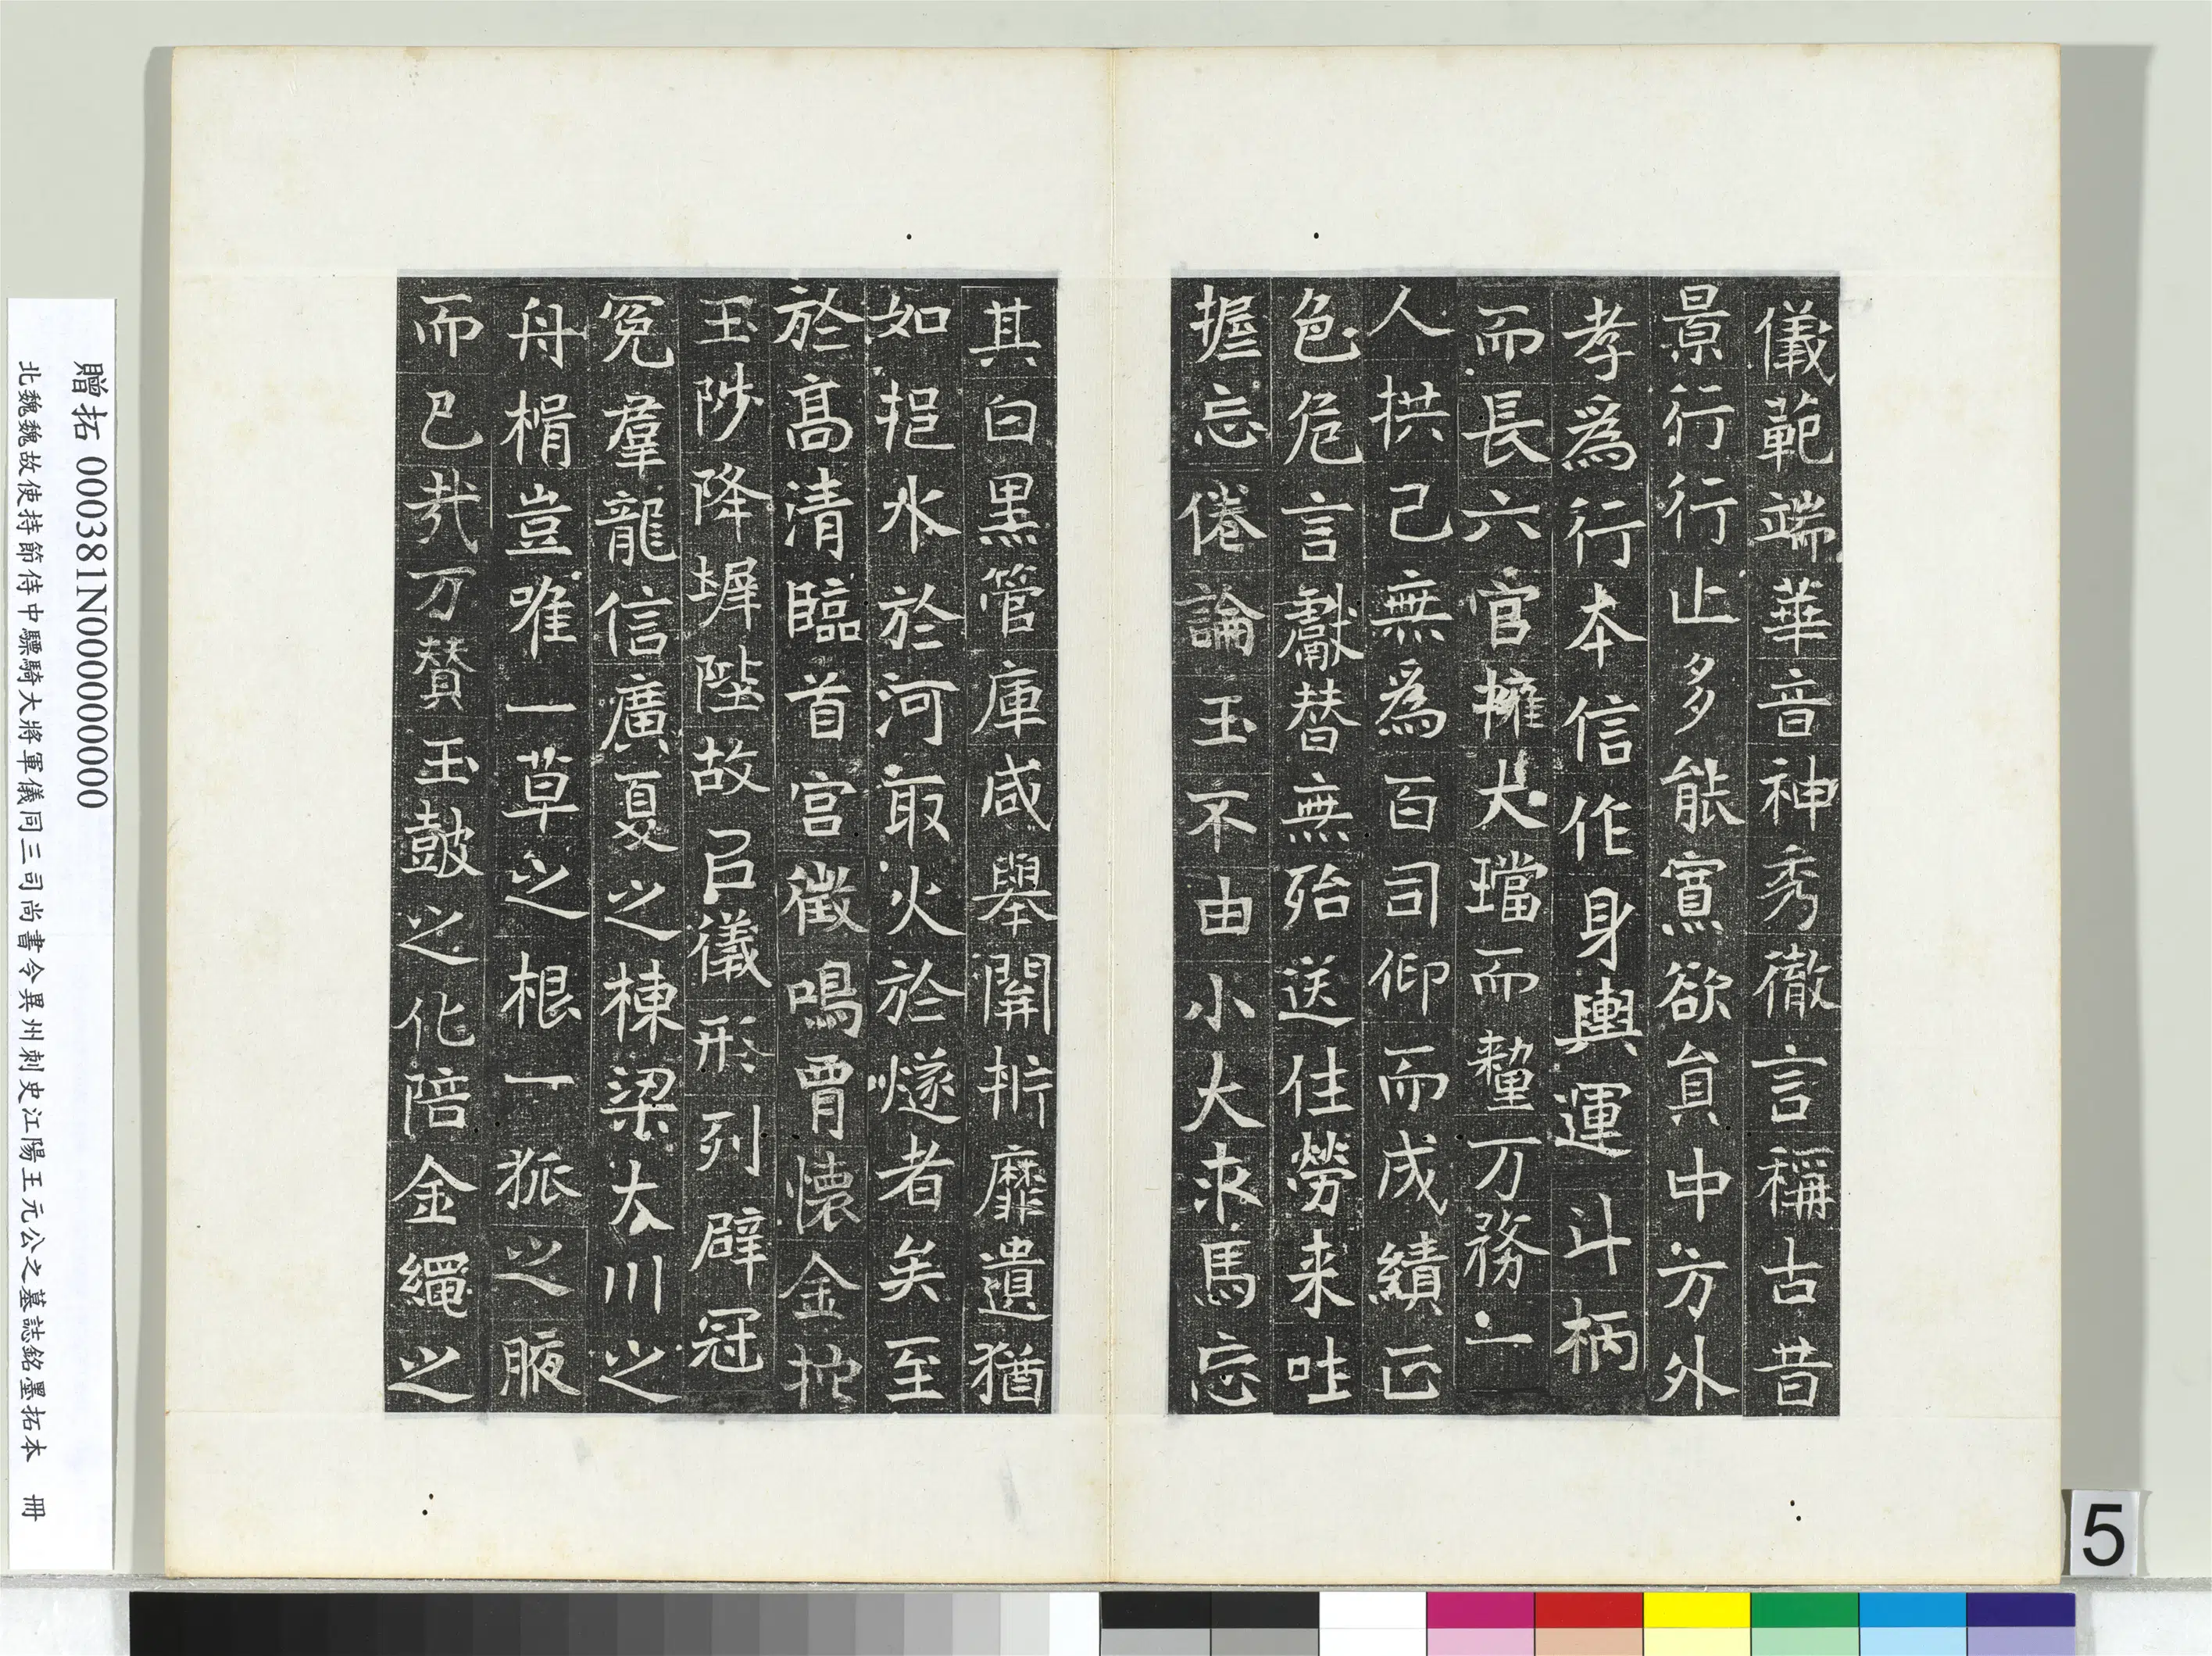 儀範端華音神秀徹言稱古昔
景行行止多能寡欲貟中方外
孝爲行本信作身輿運斗柄
而長六官擁大璫而釐万務一
人拱己無爲百司仰而成績正
色危言獻替無殆送住勞来吐
握忘倦論玉不由小大求馬忘
其白黒管庫咸舉開析靡遺猶
如挹水於河取火於燧者矣至
於髙清臨首宫徵鳴胷懷金拕
玉陟降墀陛故㠯儀形列辟冠
冕羣龍信廣夏之棟梁大川之
舟楫豈唯一草之根一狐之腋
而已㢤万賛玉鼓之化陪金繩之
贈拓 000381N000000000
北魏魏故使持節侍中驃騎大將軍儀同三司尚書令冀州刺史江陽王元公之墓誌銘墨拓本 冊
5